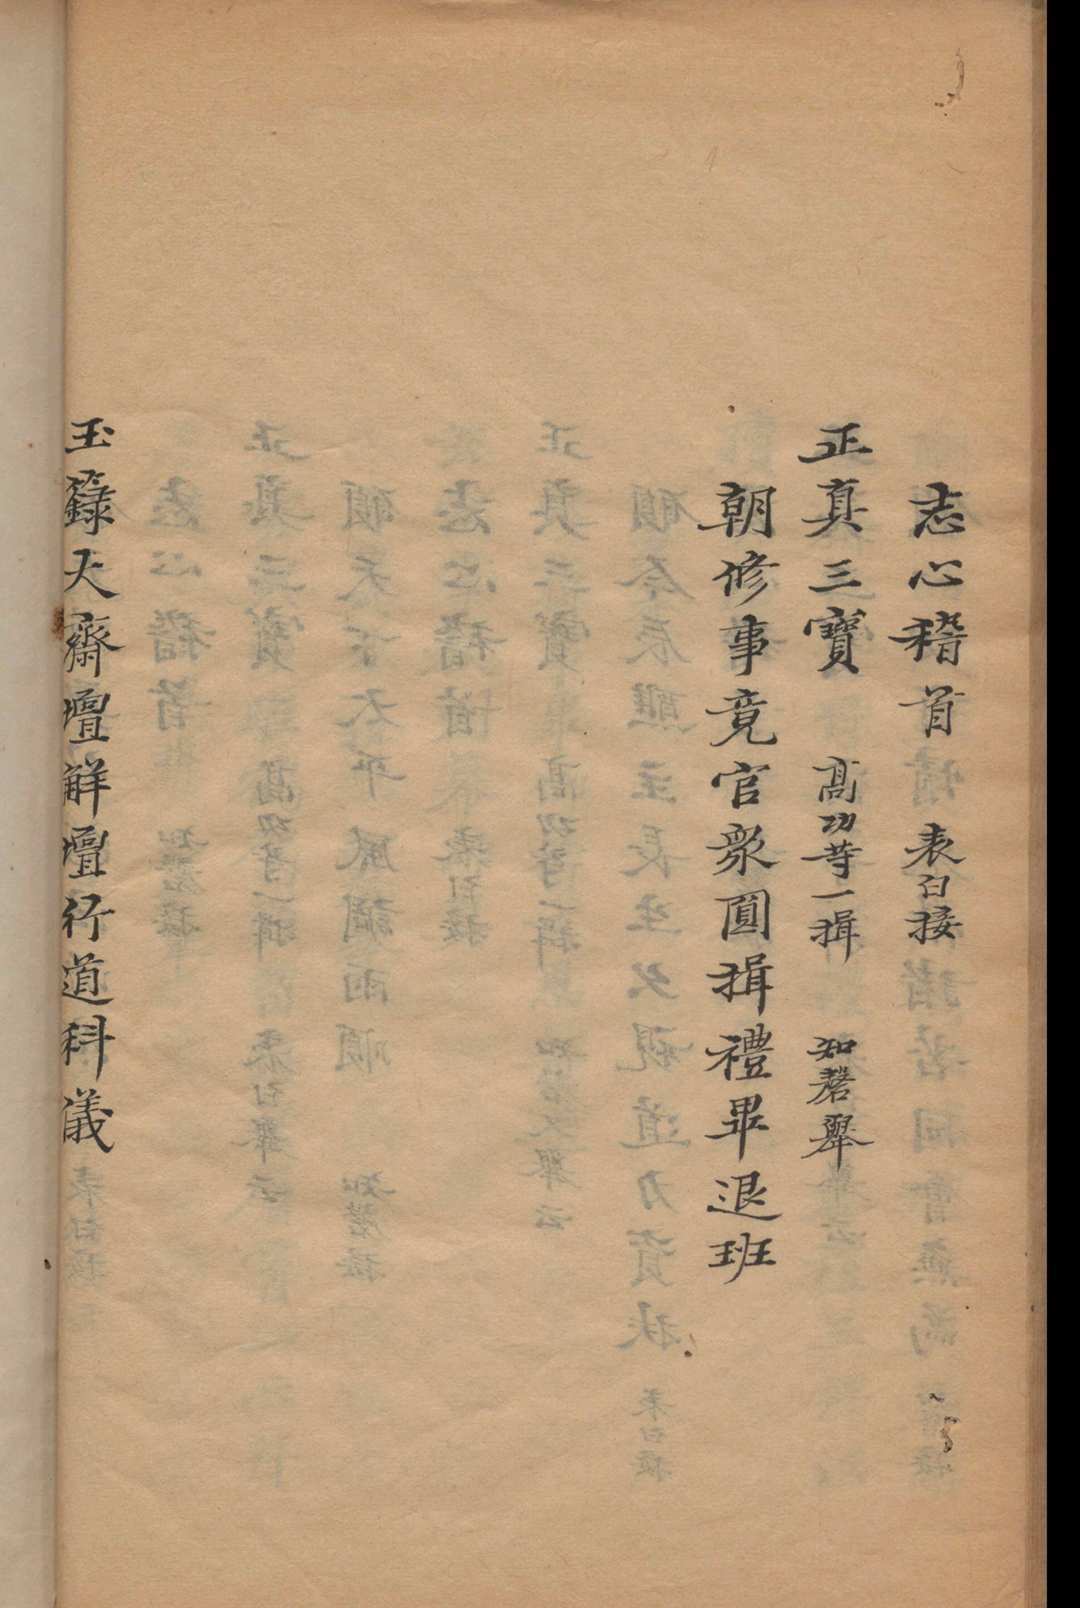 志心稽首　表白接
正真三寶　高功等一揖　知磬舉
朝修事竟官衆圓揖禮畢退班
玉籙大齋壇解壇行道科儀